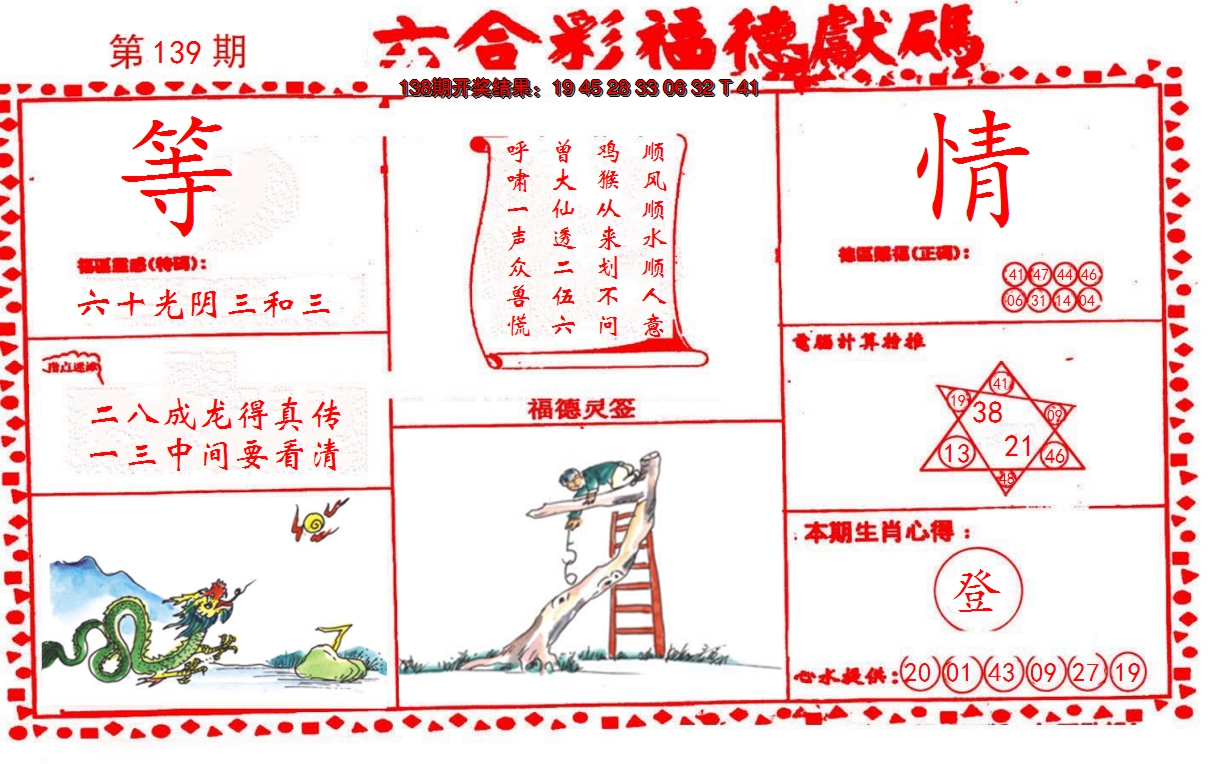 第139期
六合彩福德獻碼
138期开奖结果：19 45 28 33 06 32 T 41
等
福區靈感(特碼)：
六十光阴三和三
指点迷津
二八成龙得真传
一三中间要看清
顺风顺水顺人意
鸡猴从来划不问
曾大仙透二伍六
呼啸一声众兽慌
福德灵签
情
德區賜福(正碼)：
41 47 44 46
06 31 14 04
電腦計算推
41
19 38 09
13 21 46
48
本期生肖心得：
登
心水提供：20 01 43 09 27 19